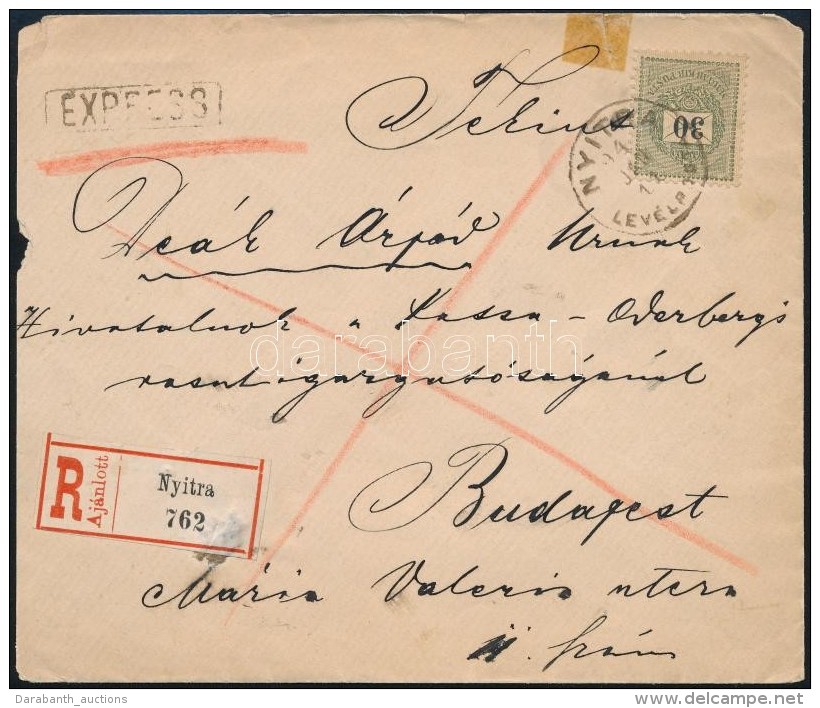 EXPRESS
Tekint.
30
NYITRA
LEVÉLP
Deák Árpád Urnak
Hivatalnok a Kassa - Oderbergi
vasut igazgatóságánál
darabanth
R
Ajánlott
Nyitra
762
Budapest
Mária Valeria utcza
11 szám
Darabanth_auctions